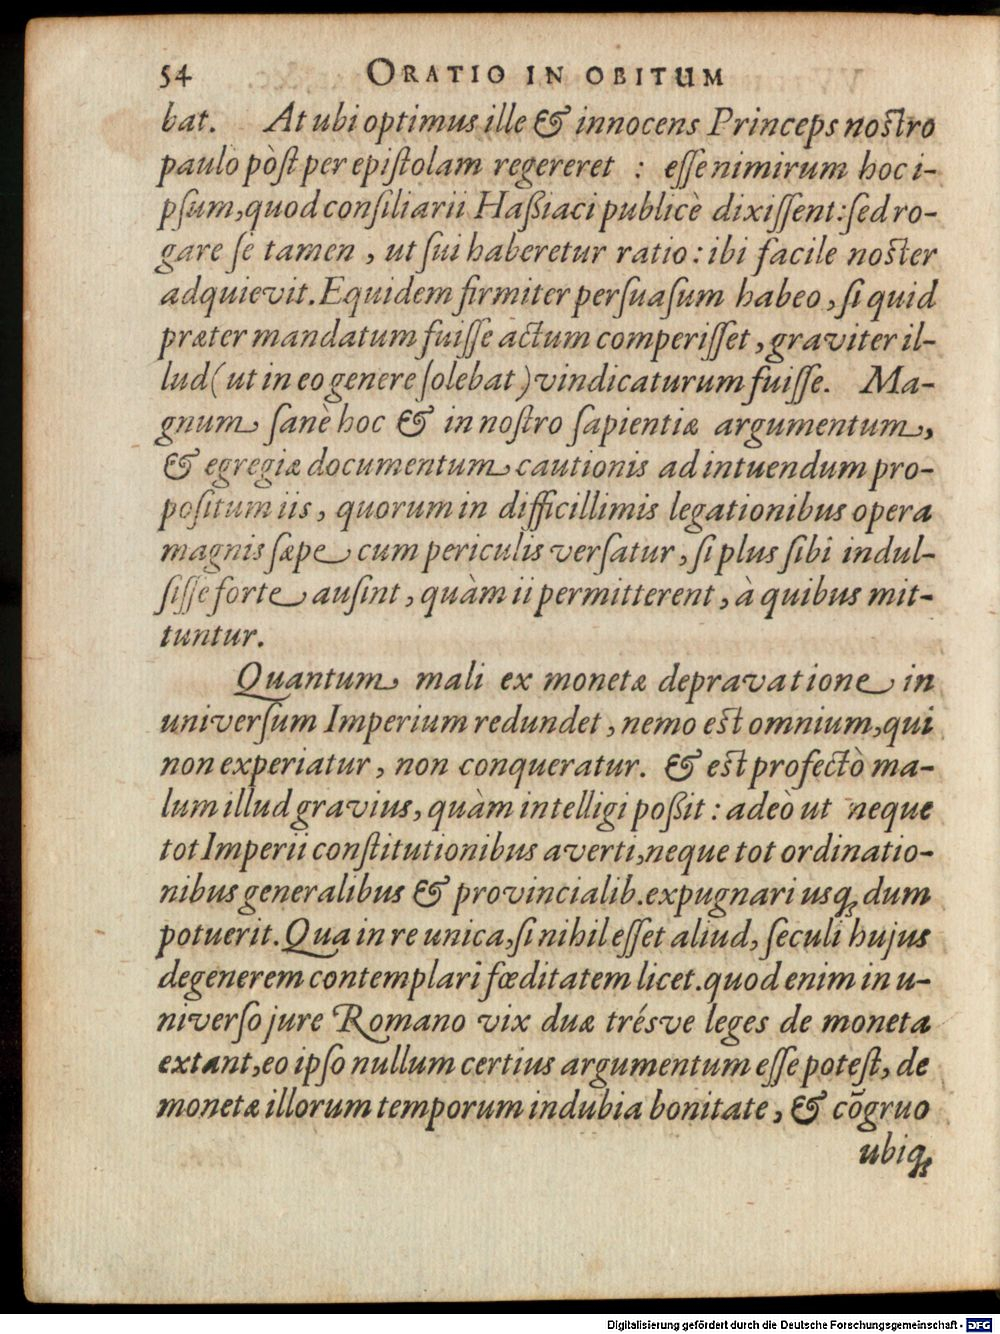 54 ORATIO IN OBITUM
bat. At ubi optimus ille & innocens Princeps nostro
paulò pòst per epistolam regereret : esse nimirum hoc i-
psum, quod consiliarii Haßiaci publicè dixissent: sed ro-
gare se tamen, ut sui haberetur ratio: ibi facile noster
adquievit. Equidem firmiter persuasum habeo, si quid
præter mandatum fuisse actum comperisset, graviter il-
lud (ut in eo genere solebat) vindicaturum fuisse. Ma-
gnum sanè hoc & in nostro sapientiæ argumentum,
& egregiæ documentum cautionis ad intuendum pro-
positum iis, quorum in difficillimis legationibus opera
magnis sæpe cum periculis versatur, si plus sibi indul-
sisse forte ausint, quàm ii permitterent, à quibus mit-
tuntur.
Quantum mali ex monetæ depravatione in
universum Imperium redundet, nemo est omnium, qui
non experiatur, non conqueratur. & est profectò ma-
lum illud gravius, quàm intelligi poßit: adeò ut neque
tot Imperii constitutionibus averti, neque tot ordinatio-
nibus generalibus & provincialib. expugnari usq; dum
potuerit. Qua in re unica, si nihil esset aliud, seculi hujus
degenerem contemplari fœditatem licet. quod enim in u-
niverso jure Romano vix duæ trésve leges de moneta
extant, eo ipso nullum certius argumentum esse potest, de
monetæ illorum temporum indubia bonitate, & cõgruo
ubiq;
Digitalisierung gefördert durch die Deutsche Forschungsgemeinschaft - DFG